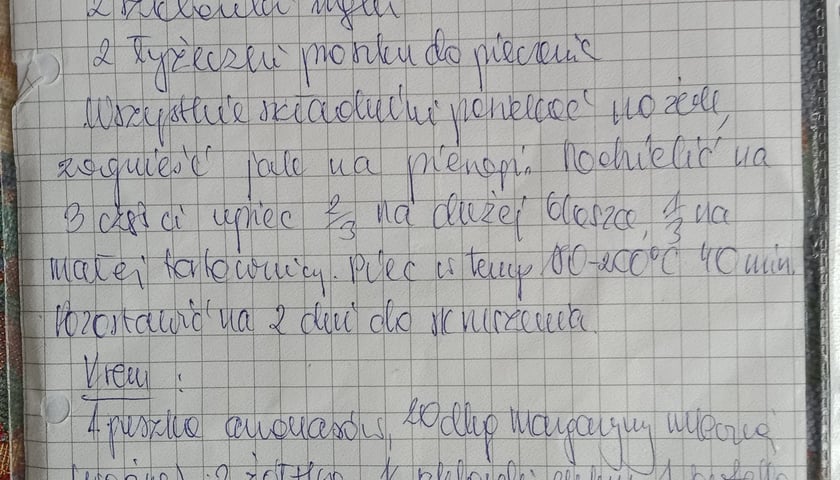 2 łyżeczki proszku do pieczenia
Wszystkie składniki posiekać nożem,
zagnieść jak na pierogi. Podzielić na
3 części upiec 2/3 na dużej blasze, 1/3 na
małej tortownicy. Piec w temp 180-200°C 40 min.
Pozostawić na 2 dni do skruszenia.
Krem:
1 puszka ananasów, 20 dkg margaryny mlecznej